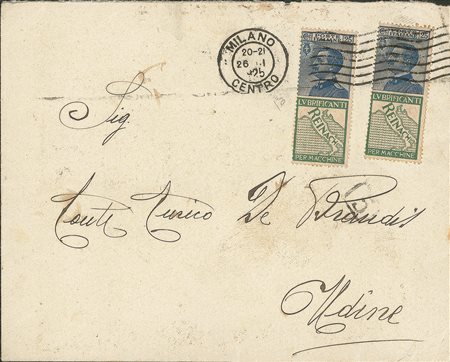 MILANO
20-21
26
CENTRO
LVBRIFICANTI
REINACH
PER MACCHINE
LVBRIFICANTI
REINACH
PER MACCHINE
Sig.
Conte Enrico De Brandis
Udine